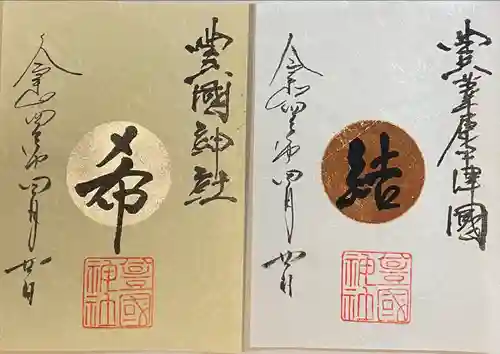 豐國神社
希
令和四年四月廿日
豊國
神社
豐葦原中津國
結
令和四年四月廿日
豊國
神社